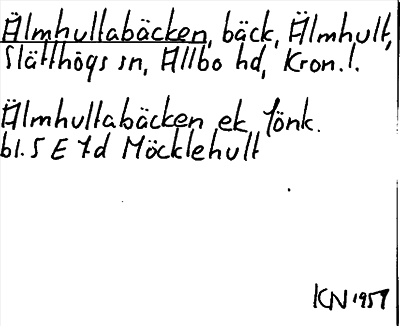 Älmhultabäcken, bäck, Älmhult,
Slätthögs sn, Allbo hd, Kron. l.
Älmhultabäcken ek Jönk.
bl. 5 E 7d Möcklehult
KN 1957